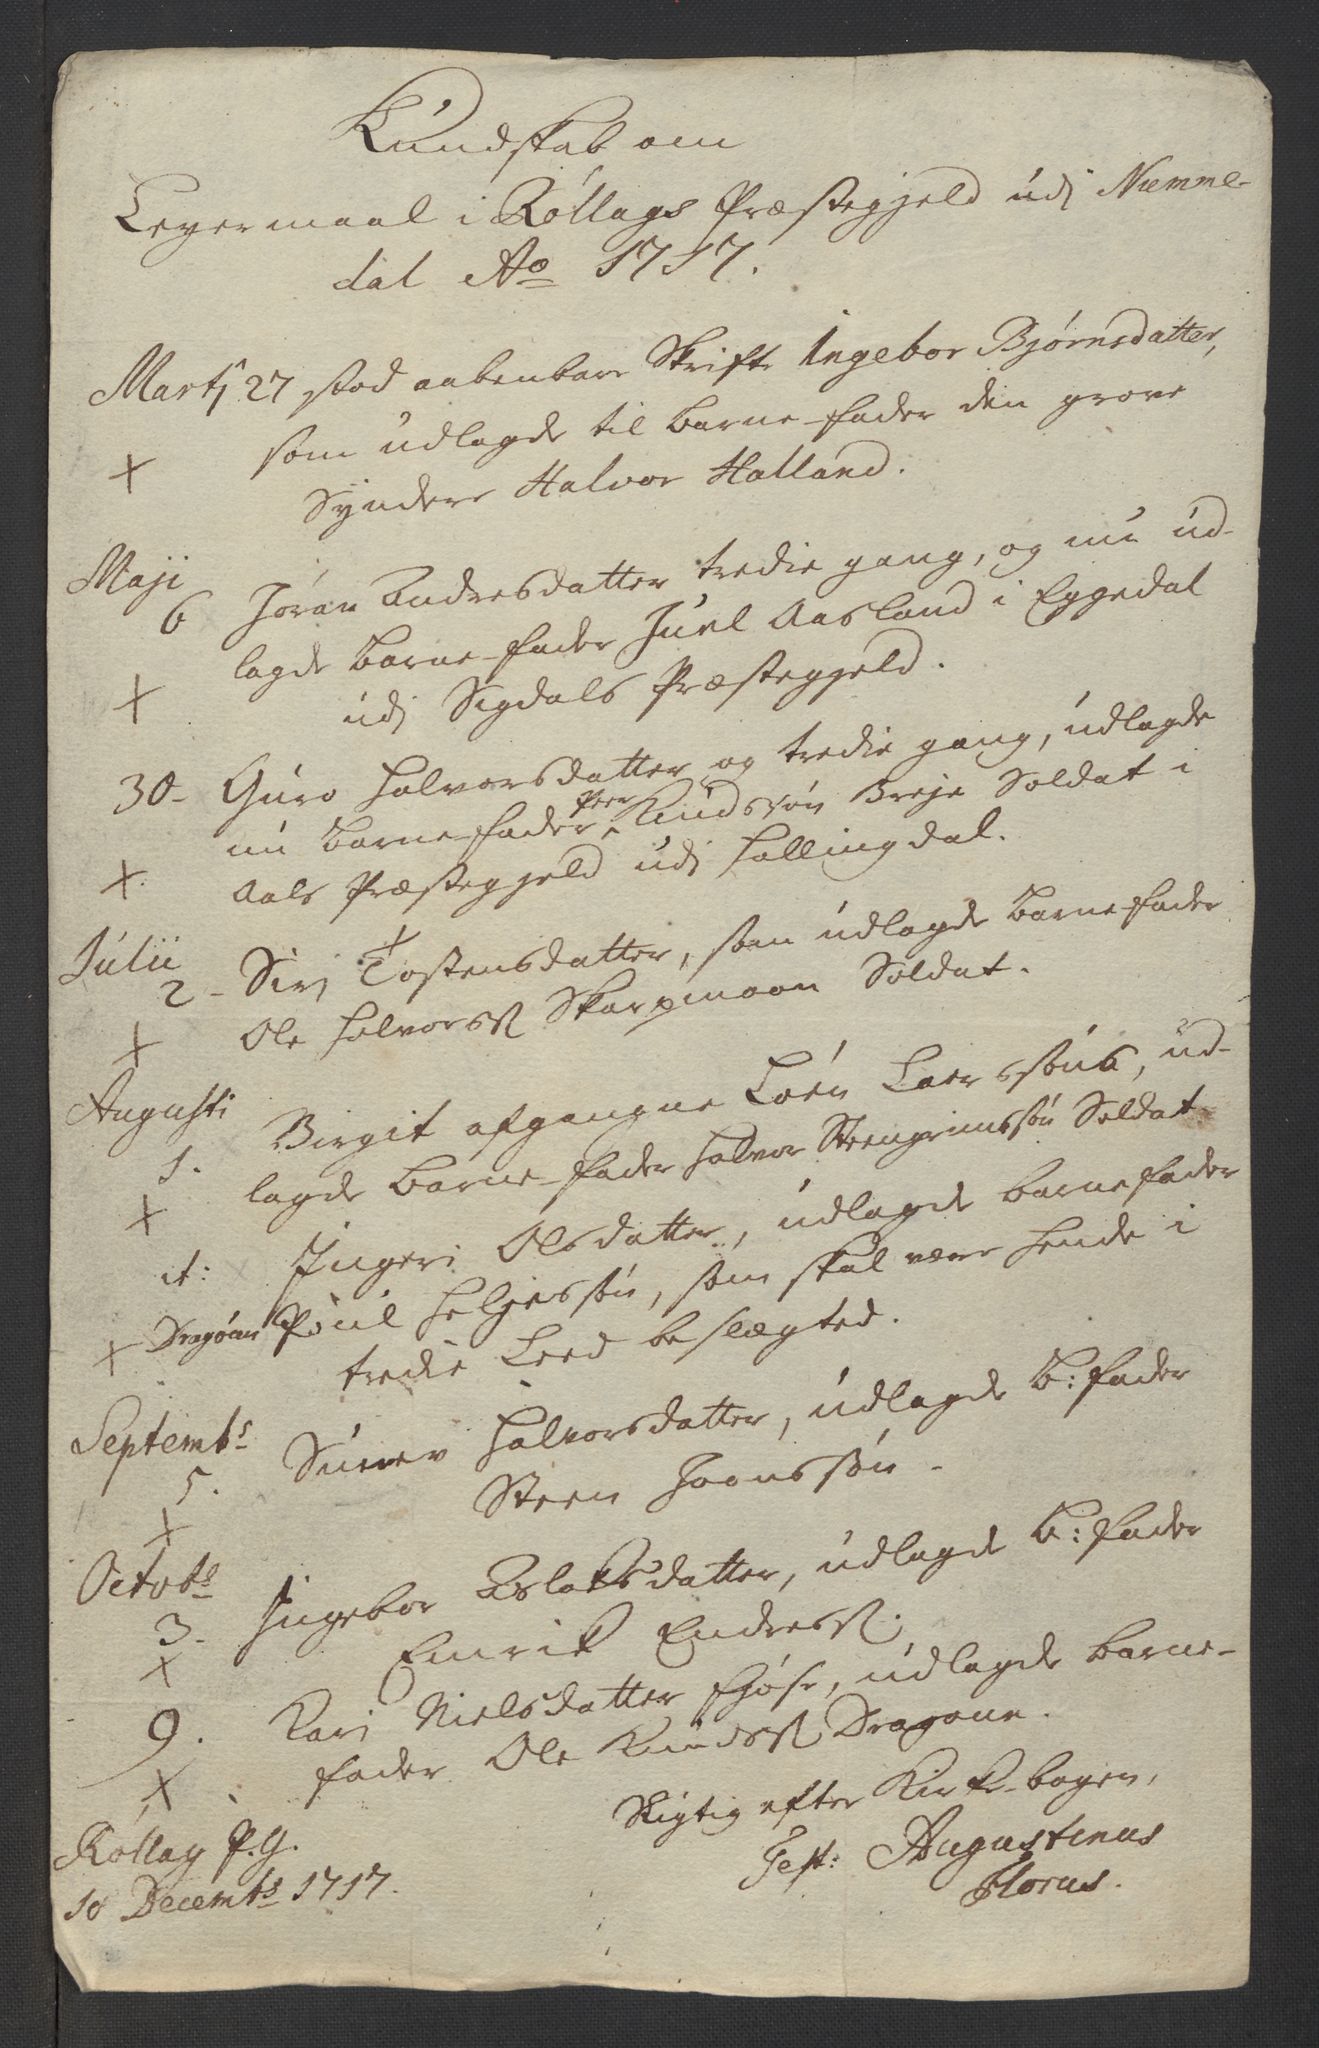 Kundskab om
Leyermaal i Róllags Præstegjeld udj Numme-
dal Ao 1717.
Martj 27 stod aabenbare Skrifte Ingebor Bjørnsdatter,
som udlagde til barne-fader den grove
+
Synder Halvor Halland.
Maji
6 Jøran Andresdatter tredie gang, og nu ud-
lagde barne-fader Juel Aasland i Eggedal
+
udj Sigdals Præstegjeld.
30- Guro Halvorsdatter og tredie gang, udlagde
nu barne-fader Peer Knudssøn Breje Soldat i
+
Aals Præstegjeld udj Hallingdal.
Julii
2- Siri Tostensdatter, som udlagde barnefader
+
Ole Halvorss: Skarpmoon Soldat.
+
Augusti
1. Birgit afgangne Loer Loerssøns, ud-
lagde barne-fader Halvor Steengrimssøn Soldat
+
it: Ingeri Olsdatter, udlagde barnefader
+ Dragoun Poúl Heljessøn, som skal være hende i
tredie Leed beslægted.
Septembr
5. Sünev Halvorsdatter, udlagde B: fader
Steen Joenssøn.
+
Octobr
3. Ingebor Aslaksdatter, udlagde B: fader
Emrik Endress:
+
9. Kari Nielsdatter Fjøse, udlagde barne-
fader Ole Knudss: Dragoun.
+
Rigtig efter Kirke-bogen,
Róllag P.G.
Test: Augustinus
10 Decembr 1717.
Florus.